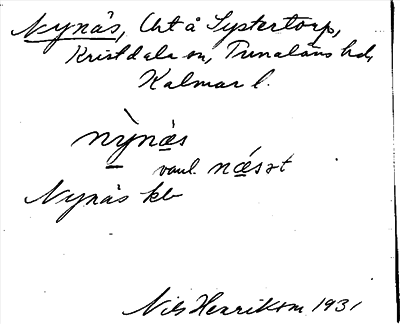 Nynäs, Cht å Systertorp,
Kristdala sn, Tunaläns hd,
Kalmar l.
nỳnäs
vanl. näset
Nynäs kb
Nils Henrikson 1931